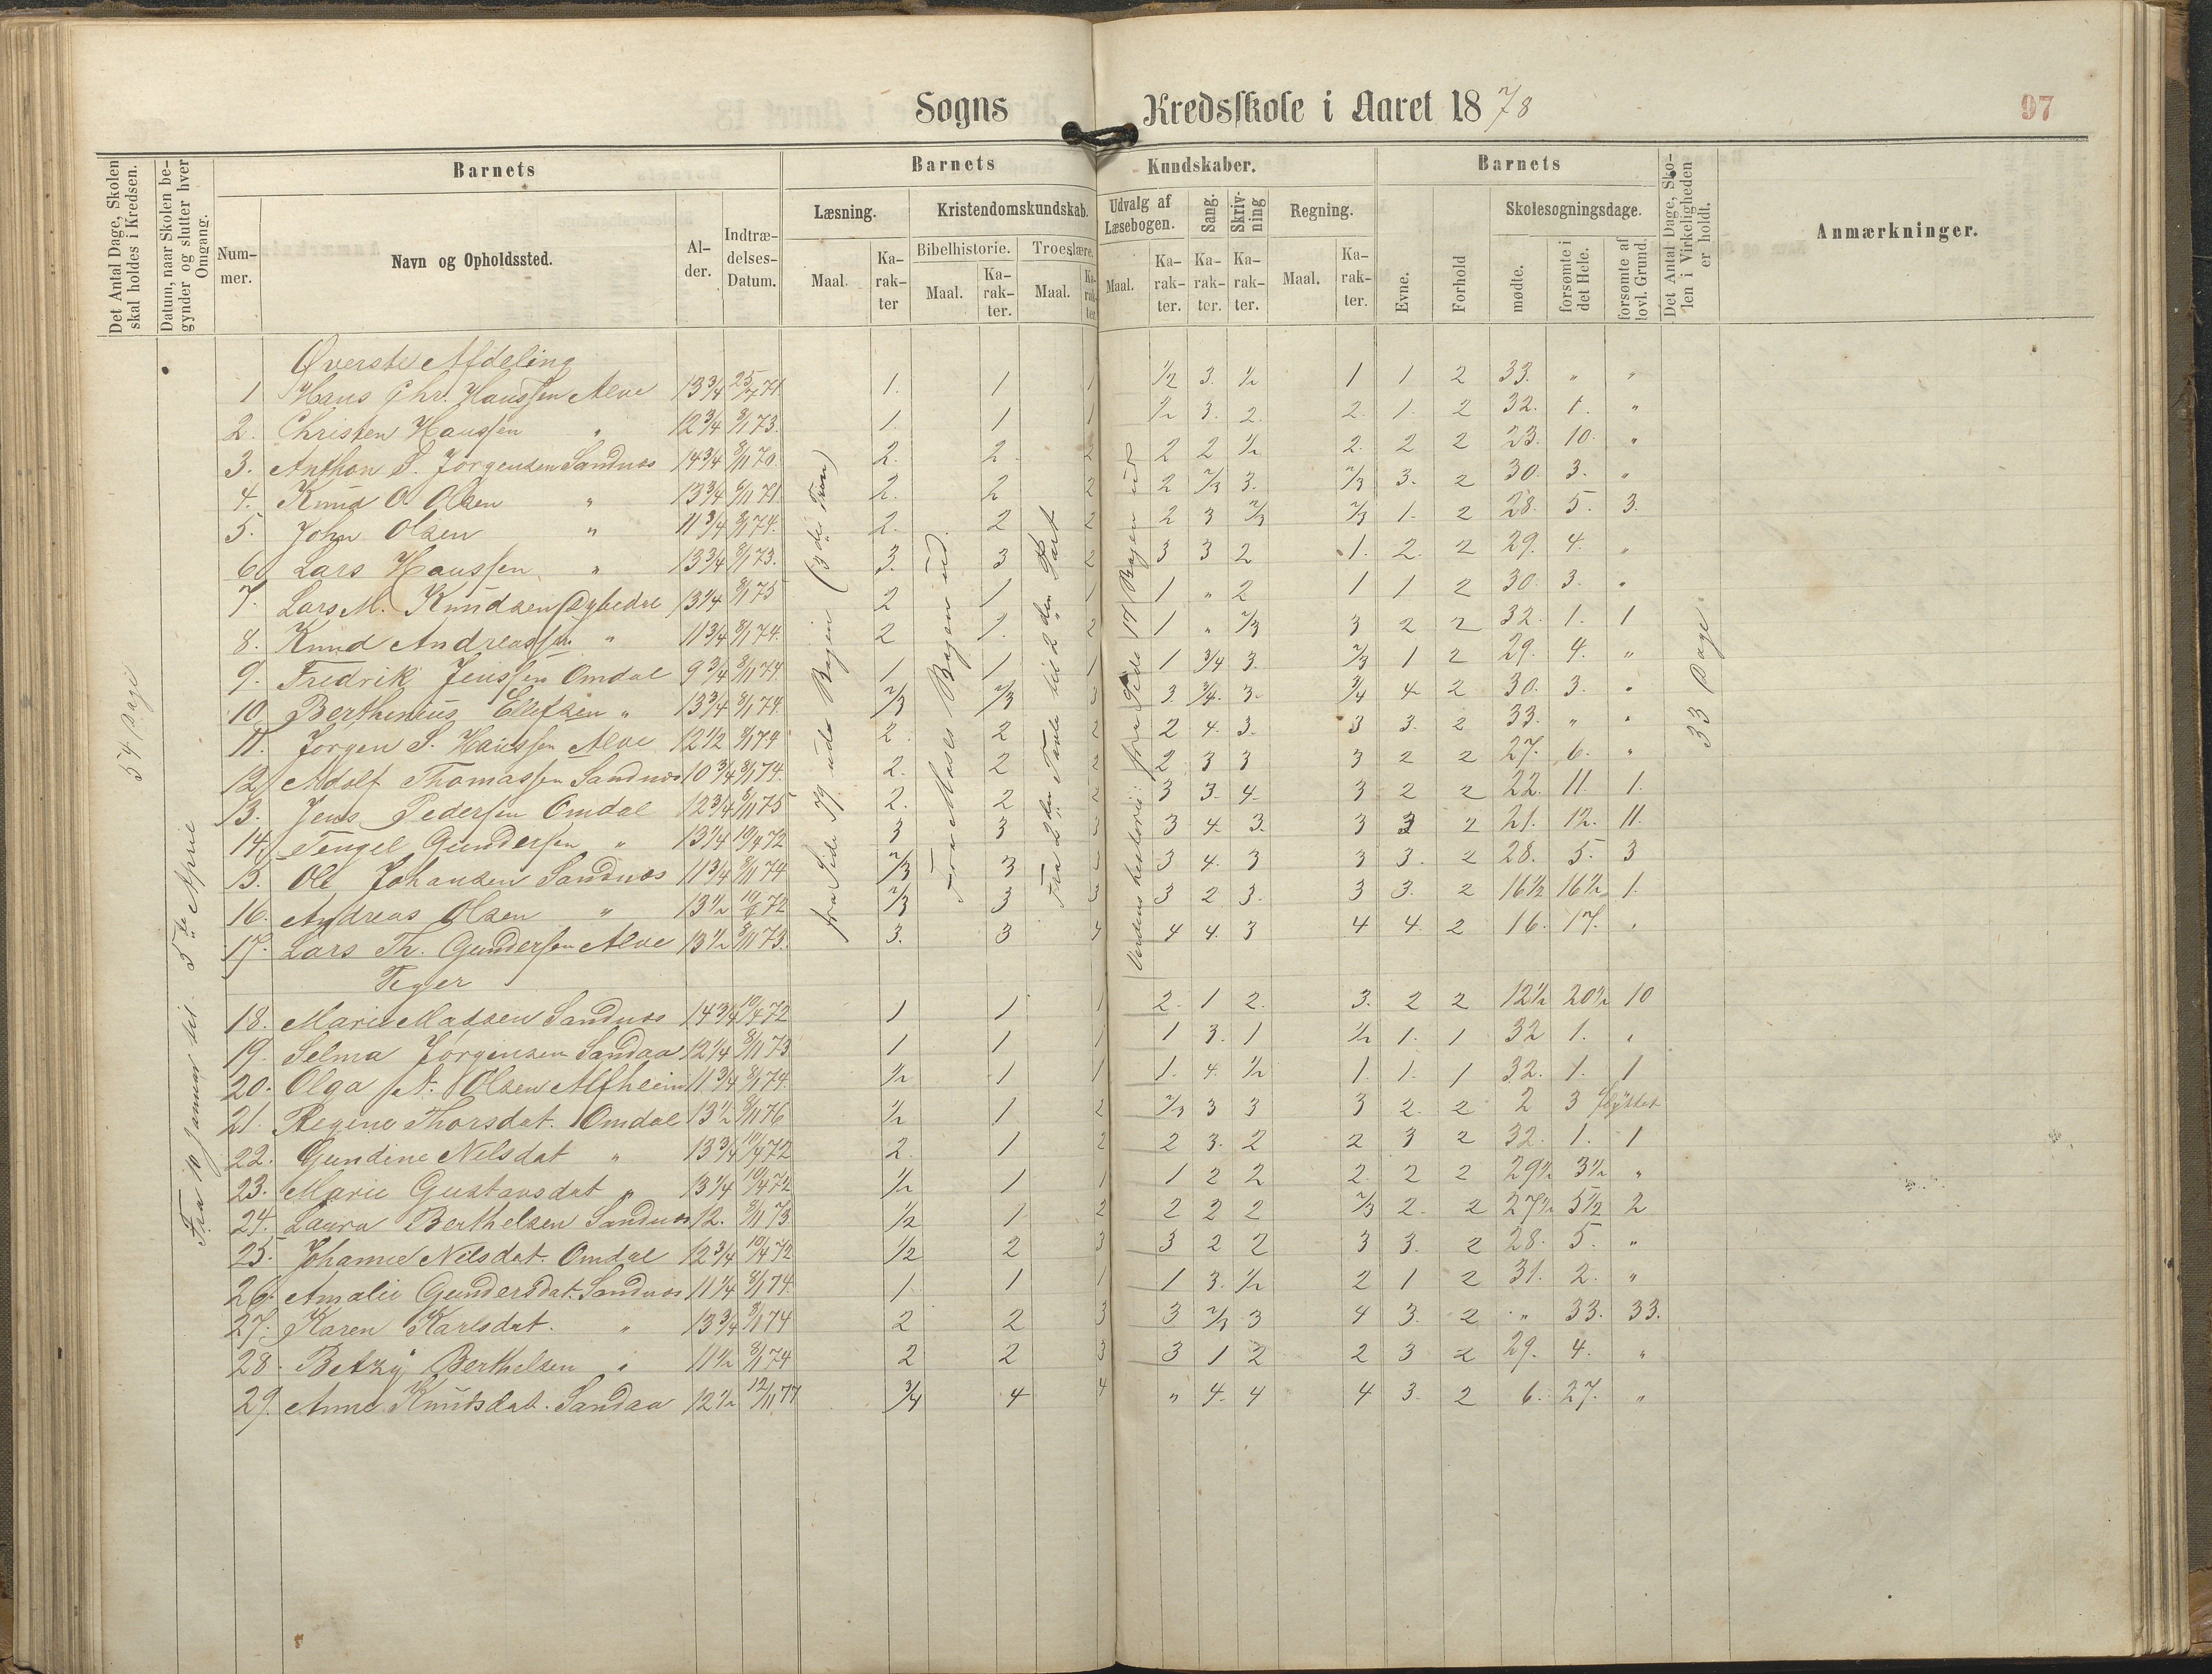 Sogns Kredsskole i Aaret 1878
97
Det Antal Dage, Skolen skal holdes i Kredsen.
Datum, naar Skolen begynder og slutter hver Omgang.
Barnets
Nummer.
Navn og Opholdssted.
Alder.
Indtrædelses-Datum.
Barnets Kundskaber.
Læsning.
Maal.
Karakter
Kristendomskundskab.
Bibelhistorie.
Maal.
Karakter.
Troeslære.
Maal.
Karakter.
Udvalg af Læsebogen.
Maal.
Karakter.
Sang.
Karakter.
Skrivning
Karakter.
Regning.
Maal.
Karakter.
Barnets
Evne.
Forhold
Skolesøgningsdage.
mødte.
forsømte i det Hele.
forsømte af lovl. Grund.
Det Antal Dage, Skolen i Virkeligheden er holdt.
Anmærkninger.
54 Dage
Fra 10 Januar til 5te April
fra Side 79 ud Bogen (3die Trin)
Fra Moses Bogen ud.
Fra 2den Tavle til 2den Part
Verdens historie: fra Side 17 Bogen ud
33 Dage
Øverste Afdeling
1 Hans Chr. Hanssen Alve 13 3/4 25/7 71 1. 1 1 1/2 3. 1/2 1 1 2 33. " "
2. Christen Hanssen " 12 3/4 8/1 73. 1. 1 1 1/2 3. 2. 2. 1. 2 32. 1. "
3. Anthon S. Jørgensen Sandnæs 14 3/4 8/11 70. 2. 2. 2 2 2 1/2 2. 2 2 23. 10. "
4. Knud O. Olsen " 13 3/4 6/11 71 2. 2 2 2 2/3 3. 2/3 3. 2 30. 3. "
5. John Olsen " 11 3/4 8/1 74. 2. 2 2 2 3 2/3 2/3 1. 2 28. 5. 3.
6. Lars Hanssen " 13 3/4 8/1 73. 3. 3 2 3 3 2 1. 2. 2 29. 4. "
7. Lars M. Knudsen 13 1/4 8/1 75 2 1 1 1 " 2 1 1 2 30. 3. "
8. Knud Andreassen " 11 3/4 8/1 74. 2 1. 2 1 " 2/3 3 2 2 32. 1. 1
9. Fredrik Jenssen Omdal 9 3/4 8/11 74. 1 1 1 1 3/4 3. 2/3 1 2 29. 4. "
10. Berthinius Ellefsen " 13 3/4 8/1 74. 2/3 2/3 3 3. 3/4. 3. 3/4 4 2 30. 3. "
11. Jørgen S. Hanssen Alve 12 1/2 8/1 74 2. 2 2 2 4. 3. 3 3. 2 33. " "
12. Adolf Thomassen Sandnæs 10 3/4 8/1 74. 2. 2 2 2 3 3 3 2 2 27. 6. "
13. Jens Pedersen Omdal 12 3/4 8/11 75 2. 2 2 3 3. 4. 3 2 2 22. 11. 1.
14. Tengel Gundersen " 13 1/4 10/4 72 3 3 3 3 4. 3. 3 3 2 21. 12. 11.
15. Ole Johansen Sandnæs 11 3/4 8/11 74 2/3 3 3 3 4. 3 3 3. 2 28. 5. 3
16. Andreas Olsen " 13 1/2 10/4 72 2/3 3 3 3 2 3. 3 3. 2 16 1/2 16 1/2 1.
17. Lars Th. Gundersen Alve 13 1/2 8/11 73. 3. 3 4 4 4. 3 4 4. 2 16. 17. "
Piger
18. Marie Madsen Sandnæs 14 3/4 10/4 72 1 1 1 2. 1 2. 3. 2 2 12 1/2 20 1/2 10
19. Selma Jørgensen Sandaa 12 1/4 8/11 73 1 1 1 1 3. 1 1/2 1. 1 32 1. "
20. Olga A. Olsen Alfheim 11 3/4 8/1 74. 1/2 1 1 1. 4. 1/2 1. 1. 1 32. 1. 1
21. Regine Thorsdat. Omdal 13 1/2 8/11 76 1/2 1 2 2/3 3 3 3 2. 2 2 3 flyttet
22. Gundine Nilsdat " 13 3/4 10/4 72 2. 1 2 2 3. 2 2 3 2 32. 1. 1
23. Marie Gustavsdat " 13 1/4 10/4 72 1/2 1 1 1 2 2 2. 2 2 29 1/2 3 1/2 "
24. Laura Berthelsen Sandnæs 12. 8/11 73 1/2 1 2 2 2 2 2/3 2. 2 27 1/2 5 1/2 2
25. Johanne Nilsdat. Omdal 12 3/4 10/4 72 1/2 2 3 3 2 2 3 3. 2 28. 5. "
26. Amalie Gundersdat. Sandnæs 11 1/4 8/1 74. 1 1 1 1 3. 1/2 2 1 2 31. 2. "
27. Karen Karlsdat. " 13 3/4 8/1 74 2 2 3 3 2/3 3 4 3. 2 " 33. 33.
28. Betzy Berthelsen " 11 1/2 8/1 74 2 2 3 3 1 2 2 3 2 29. 4. "
29. Anne Knudsdat. Sandaa 12 1/2 12/11 77 3/4 4 4 " 4. 4 4 3. 2 6. 27. "